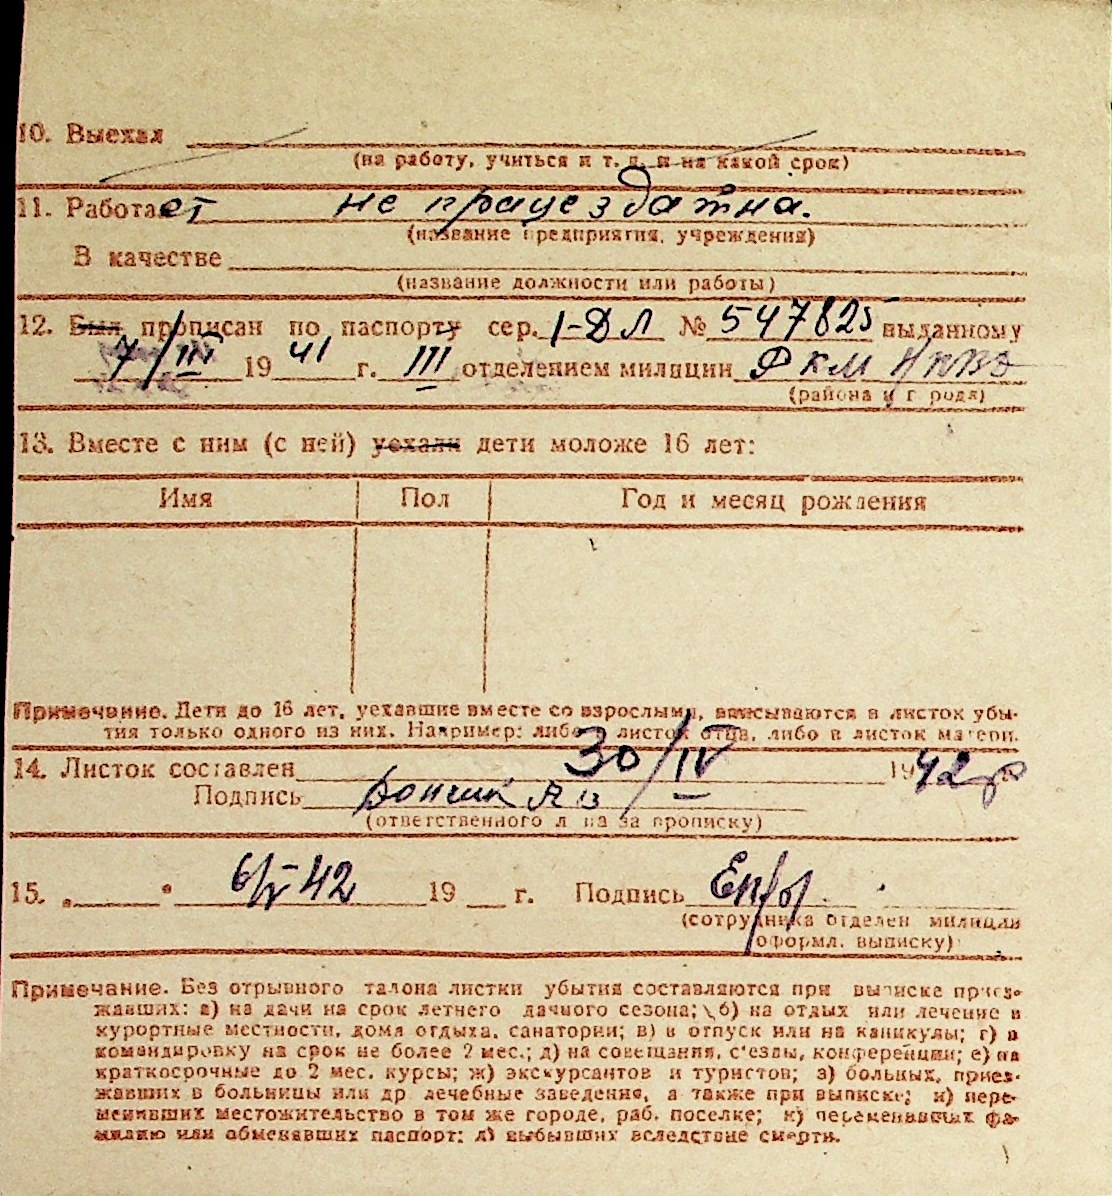 10. Выехал
(на работу, учиться и т. д. и на какой срок)
11. Работает не працездатна.
(название предприятия, учреждения)
В качестве
(название должности или работы)
12. Был прописан по паспорту сер. I-ДЛ № 547825 выданному
7/III 19 41 г. III отделением милиции РКМ НКВД
(района и города)
13. Вместе с ним (с ней) уехали дети моложе 16 лет:
Имя Пол Год и месяц рождения
Примечание. Дети до 16 лет, уехавшие вместе со взрослыми, вписываются в листок убы-
тия только одного из них. Например: либо в листок отца, либо в листок матери.
14. Листок составлен 30/IV 1942 г
Подпись
(ответственного лица за прописку)
15. „ " 6/V 42 19 г. Подпись
(сотрудника отделен милиции
оформл. выписку)
Примечание. Без отрывного талона листки убытия составляются при выписке приез-
жавших: а) на дачи на срок летнего дачного сезона; б) на отдых или лечение в
курортные местности, дома отдыха, санатории; в) в отпуск или на каникулы; г) в
командировку на срок не более 2 мес.; д) на совещания, с'езды, конференции; е) на
краткосрочные до 2 мес. курсы; ж) экскурсантов и туристов; з) больных, приез-
жавших в больницы или др лечебные заведения, а также при выписке; и) пере-
менивших местожительство в том же городе, раб. поселке; к) переменявших фа-
милию или обменявших паспорт; л) выбывших вследствие смерти.